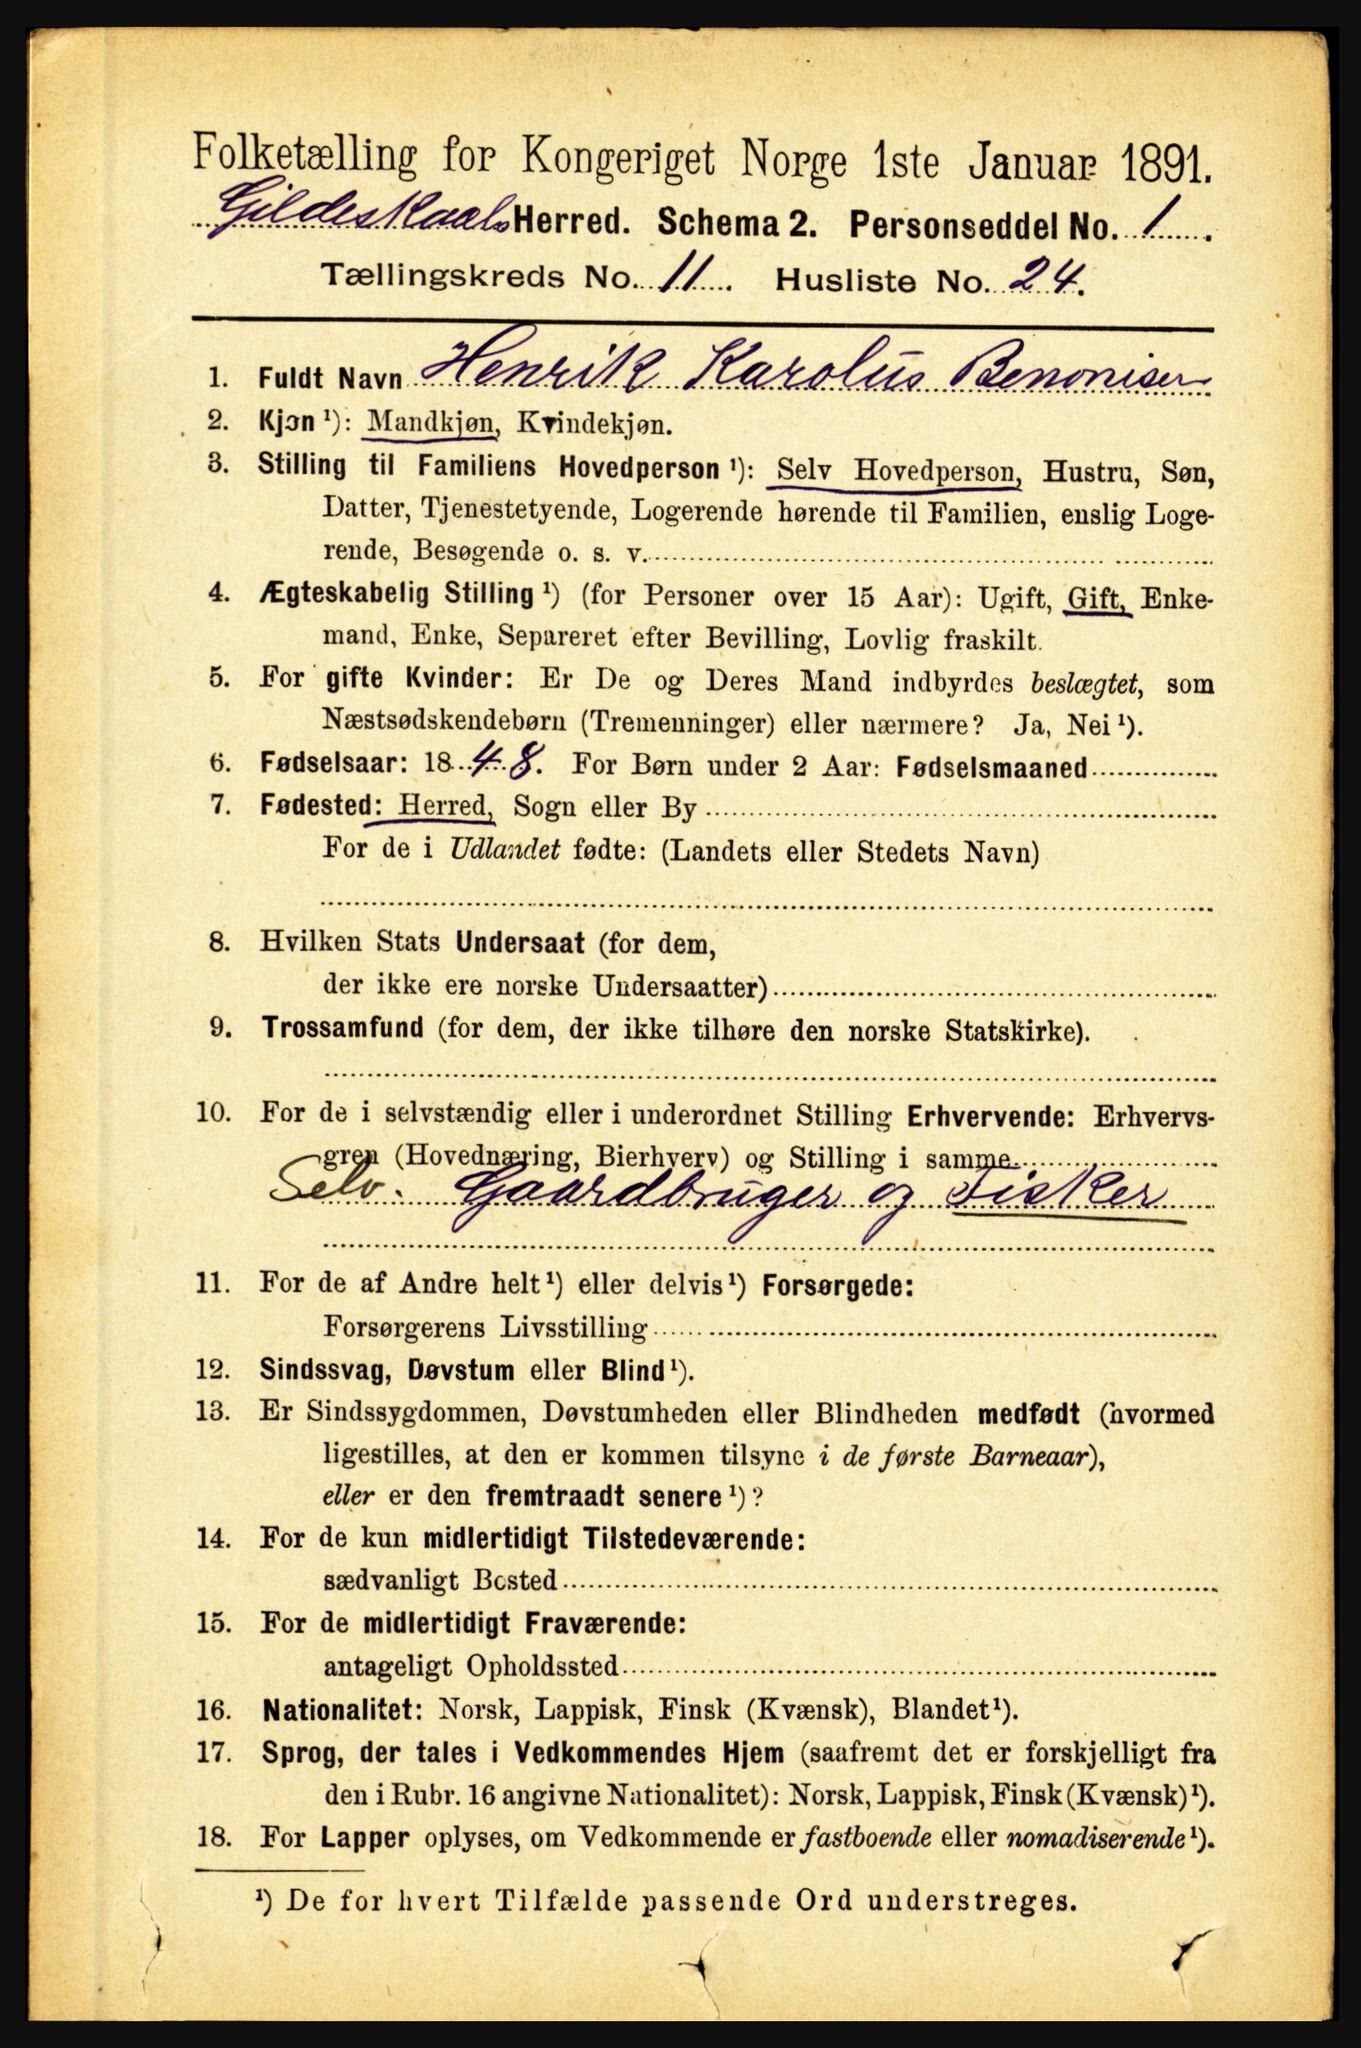 Folketælling for Kongeriget Norge 1ste Januar 1891.
Gildeskaals Herred. Schema 2. Personseddel No. 1.
Tællingskreds No. 11. Husliste No. 24.
1. Fuldt Navn Henrik Karolus Benonisen
2. Kjøn ¹): Mandkjøn, Kvindekjøn.
3. Stilling til Familiens Hovedperson ¹): Selv Hovedperson, Hustru, Søn,
Datter, Tjenestetyende, Logerende hørende til Familien, enslig Loge-
rende, Besøgende o. s. v.
4. Ægteskabelig Stilling ¹) (for Personer over 15 Aar): Ugift, Gift, Enke-
mand, Enke, Separeret efter Bevilling, Lovlig fraskilt.
5. For gifte Kvinder: Er De og Deres Mand indbyrdes beslægtet, som
Næstsødskendebørn (Tremenninger) eller nærmere? Ja, Nei ¹).
6. Fødselsaar: 1848. For Børn under 2 Aar: Fødselsmaaned
7. Fødested: Herred, Sogn eller By
For de i Udlandet fødte: (Landets eller Stedets Navn)
8. Hvilken Stats Undersaat (for dem,
der ikke ere norske Undersaatter)
9. Trossamfund (for dem, der ikke tilhøre den norske Statskirke).
10. For de i selvstændig eller i underordnet Stilling Erhvervende: Erhvervs-
gren (Hovednæring, Bierhverv) og Stilling i samme
Selv. Gaardbruger og Fisker
11. For de af Andre helt ¹) eller delvis ¹) Forsørgede:
Forsørgerens Livsstilling
12. Sindssvag, Døvstum eller Blind ¹).
13. Er Sindssygdommen, Døvstumheden eller Blindheden medfødt (hvormed
ligestilles, at den er kommen tilsyne i de første Barneaar),
eller er den fremtraadt senere ¹)?
14. For de kun midlertidigt Tilstedeværende:
sædvanligt Bosted
15. For de midlertidigt Fraværende:
antageligt Opholdssted
16. Nationalitet: Norsk, Lappisk, Finsk (Kvænsk), Blandet ¹).
17. Sprog, der tales i Vedkommendes Hjem (saafremt det er forskjelligt fra
den i Rubr. 16 angivne Nationalitet): Norsk, Lappisk, Finsk (Kvænsk) ¹).
18. For Lapper oplyses, om Vedkommende er fastboende eller nomadiserende ¹).
¹) De for hvert Tilfælde passende Ord understreges.